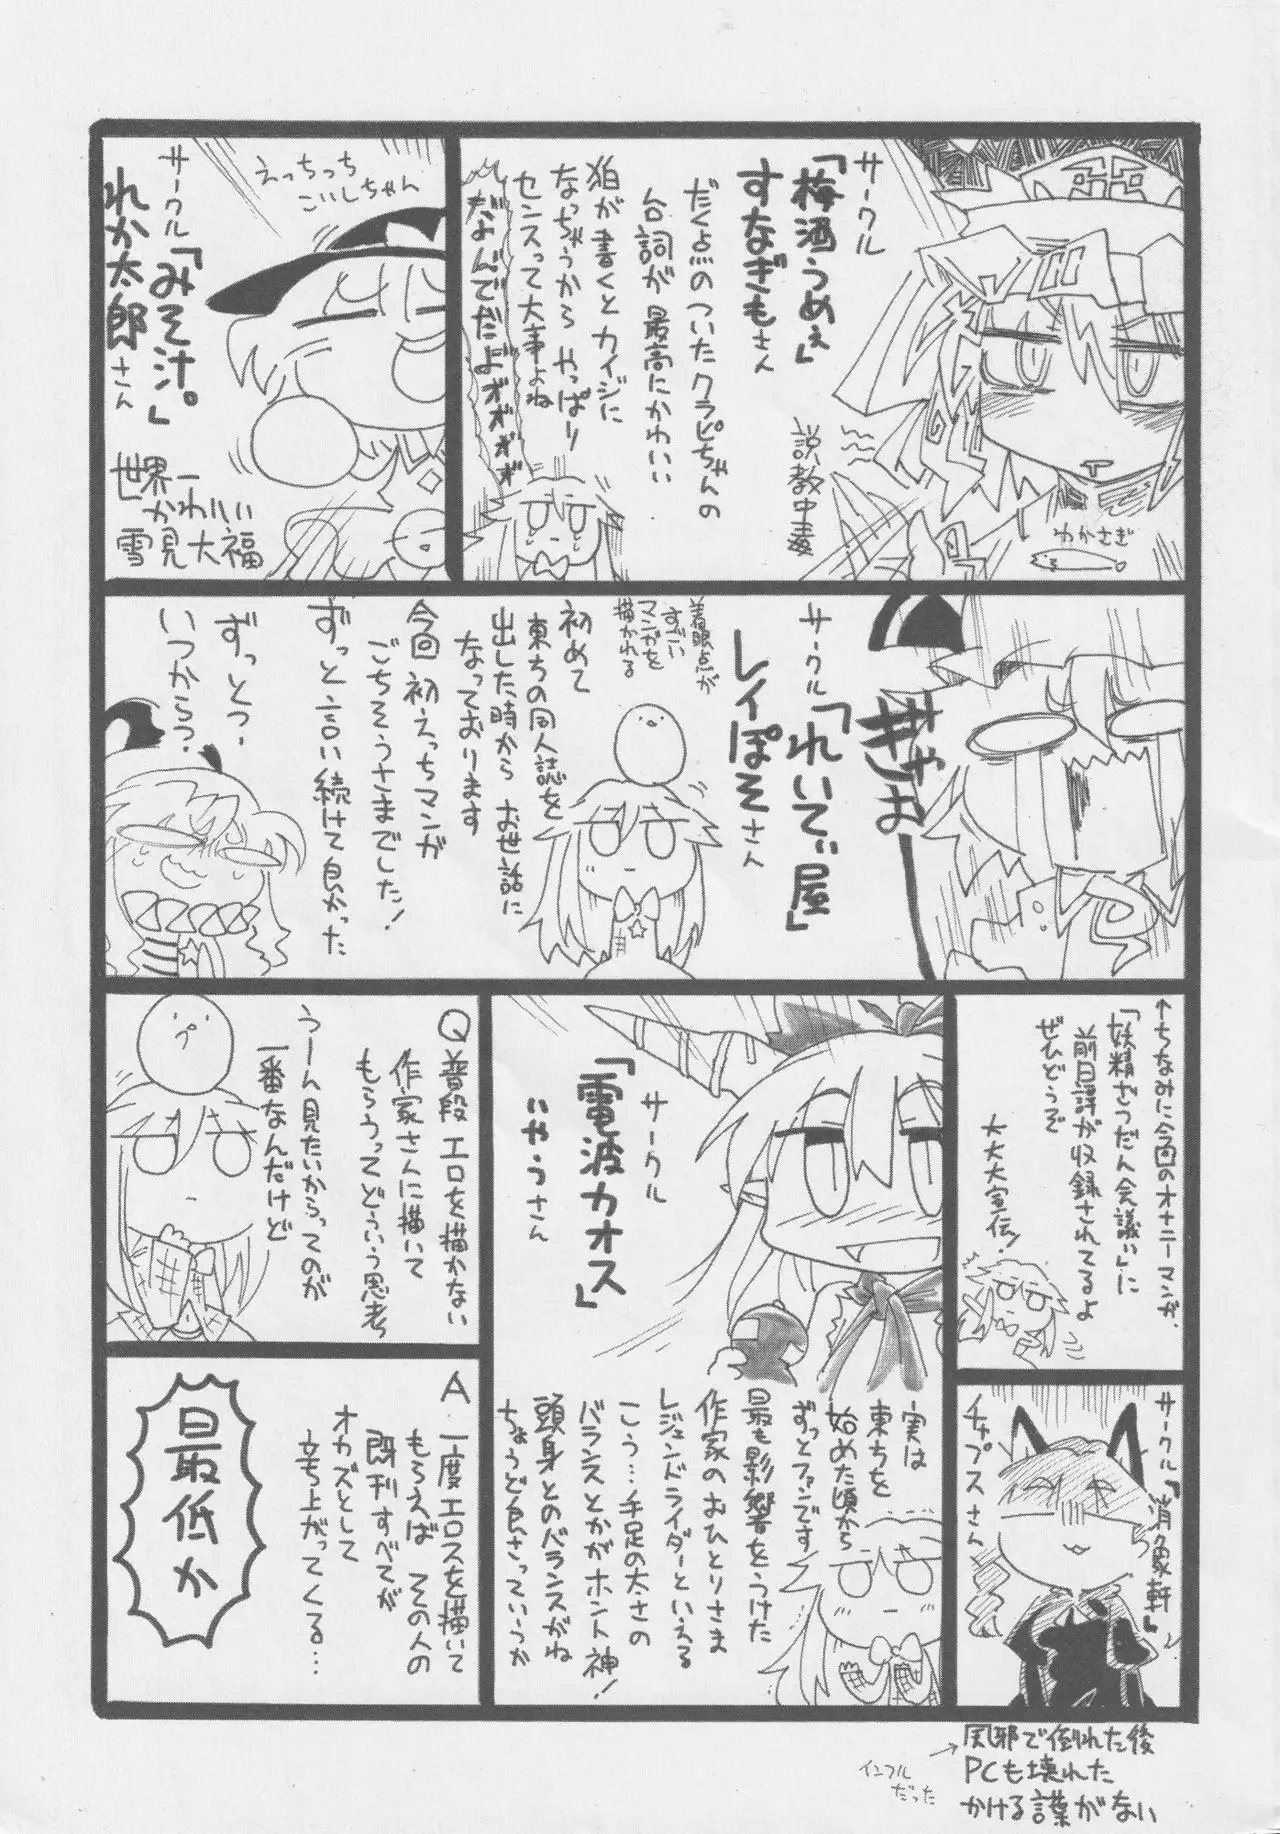 サークル
「梅酒うめぇ」
すなぎもさん
だく点のついたクラピちゃんの
台詞が最高にかわいい
狛が書くとカイジに
なっちゃうから やっぱり
センスって大事よね
なんでだよ
説教中毒
わかさぎ
えっちっち
こいしちゃん
サークル「みそ汁。」
れか太郎さん
世界一
かわいい
雪見大福
ぎゃお
サークル「れいてゞ屋」
レイぽそさん
着眼点が
すごい
マンガを
描かれる
初めて
東方の同人誌を
出した時から お世話に
なっております
今回 初えっちマンガ
ごちそうさまでした!
ずっと言い続けて良かった
ずっとっ…
いつからっ?
←ちなみに今回のオナニーマンガ、
「妖精ざつだん会議い」に
前日譚が収録されてるよ
ぜひどうぞ
大大大宣伝!
サークル「消象軒」
チャプスさん
サークル
「電波カオス」
いやうさん
実は
東方を
始めた頃から
ずっとファンです
最も影響をうけた
作家のおひとりさま
レジェンドライダーといえる
こう…手足の太さの
バランスとかがホント神!
頭身とのバランスがね
ちょうど良さっていうか
Q 普段エロを描かない
作家さんに描いて
もらうってどういう思考
うーん見たいからってのが
一番なんだけど
A 一度エロスを描いて
もらえば その人の
既刊すべてが
オカズとして
立ち上がってくる…
最低か
→風邪で倒れた後
PCも壊れた
かける言葉がない
インフル
だった